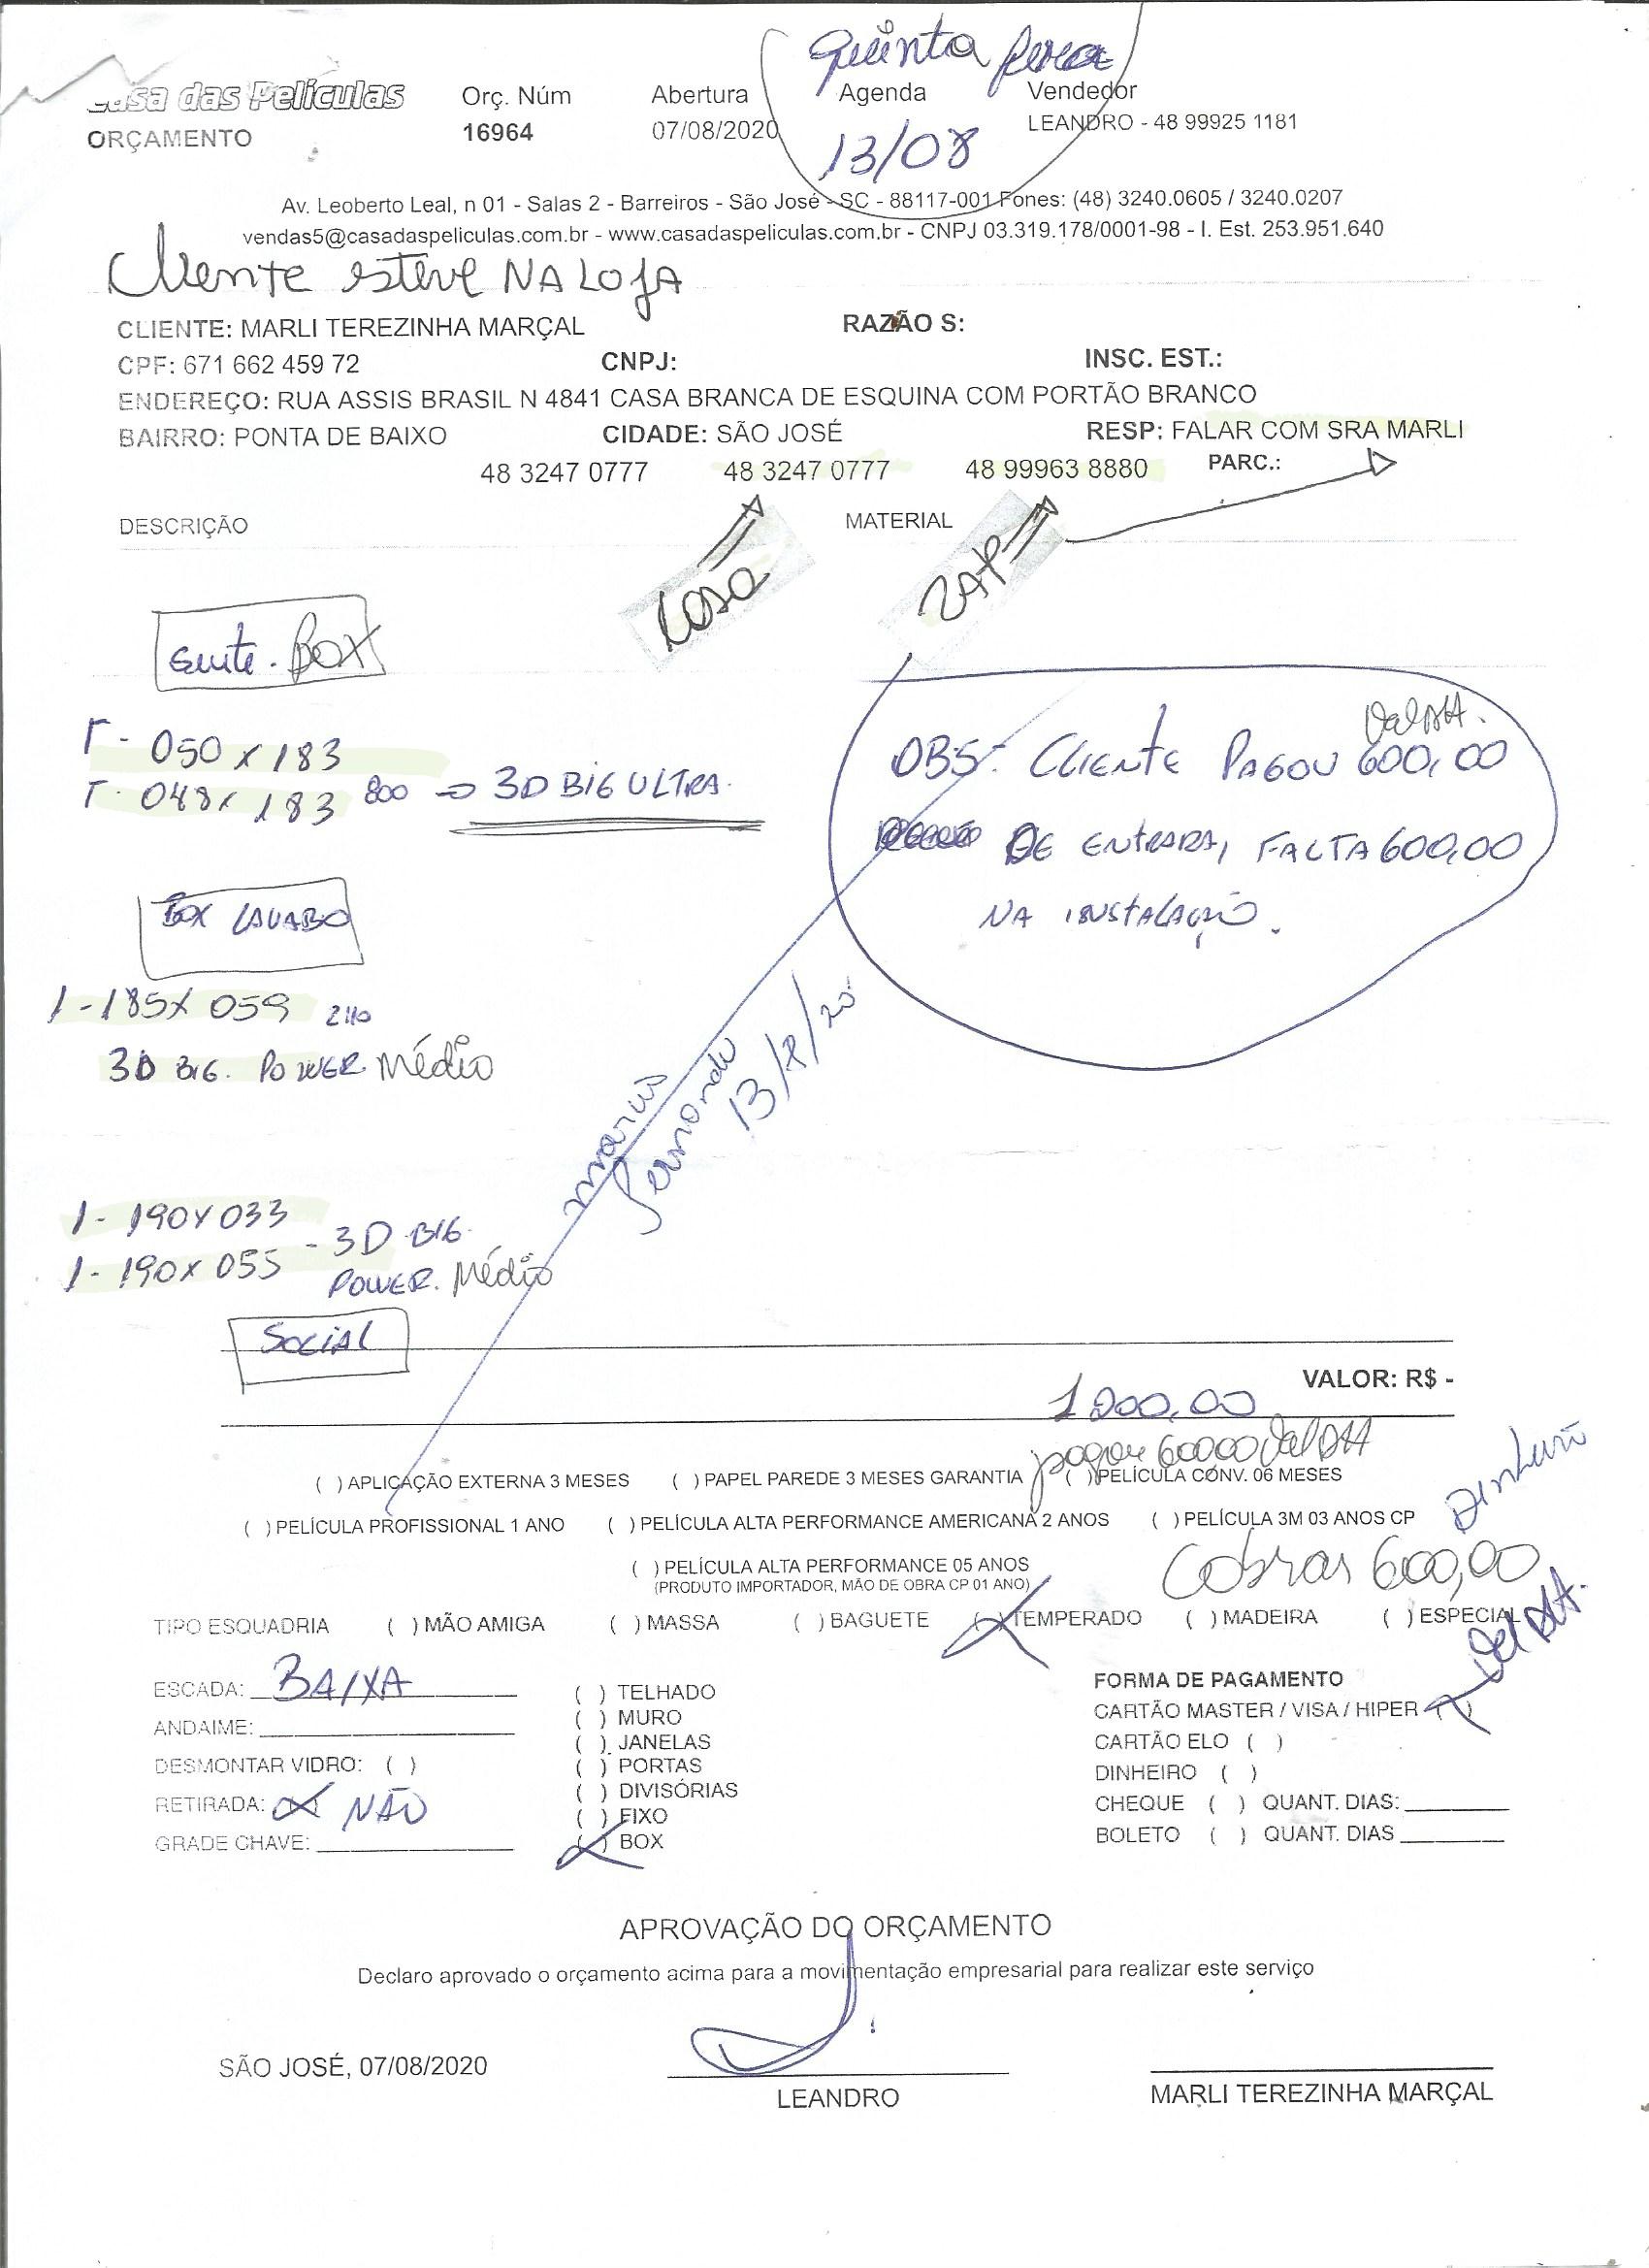 quinta feira
Casa das Películas Orç. Núm Abertura Agenda Vendedor
ORÇAMENTO 16964 07/08/2020 13/08 LEANDRO - 48 99925 1181
Av. Leoberto Leal, n 01 - Salas 2 - Barreiros - São José - SC - 88117-001 Fones: (48) 3240.0605 / 3240.0207
vendas5@casadaspeliculas.com.br - www.casadaspeliculas.com.br - CNPJ 03.319.178/0001-98 - I. Est. 253.951.640
Cliente esteve NA LOJA
CLIENTE: MARLI TEREZINHA MARÇAL RAZÃO S:
CPF: 671 662 459 72 CNPJ: INSC. EST.:
ENDEREÇO: RUA ASSIS BRASIL N 4841 CASA BRANCA DE ESQUINA COM PORTÃO BRANCO
BAIRRO: PONTA DE BAIXO CIDADE: SÃO JOSÉ RESP: FALAR COM SRA MARLI
48 3247 0777 48 3247 0777 48 99963 8880 PARC.:
DESCRIÇÃO MATERIAL
CASA ZAP
Suite. BOX
050 x 183
048 x 183 800 → 3D BIG ULTRA.
OBS: CLIENTE PAGOU 600,00
DE ENTRADA, FALTA 600,00
NA INSTALAÇÃO.
BOX LAVABO
1-185X 059 240
3D BIG. POWER Médio
marcus
Fernando
13/8/20
1- 190X033
1- 190X055 - 3D BIG.
POWER. Médio
SOCIAL
VALOR: R$ -
1200,00
pagou 600,00
( ) APLICAÇÃO EXTERNA 3 MESES ( ) PAPEL PAREDE 3 MESES GARANTIA ( ) PELÍCULA CONV. 06 MESES
Dinheiro
( ) PELÍCULA PROFISSIONAL 1 ANO ( ) PELÍCULA ALTA PERFORMANCE AMERICANA 2 ANOS ( ) PELÍCULA 3M 03 ANOS CP
( ) PELÍCULA ALTA PERFORMANCE 05 ANOS
(PRODUTO IMPORTADOR, MÃO DE OBRA CP 01 ANO)
Cobrar 600,00
TIPO ESQUADRIA ( ) MÃO AMIGA ( ) MASSA ( ) BAGUETE (X) TEMPERADO ( ) MADEIRA ( ) ESPECIAL
ESCADA: BAIXA
ANDAIME:
DESMONTAR VIDRO: ( )
RETIRADA: (X) NÃO
GRADE CHAVE:
( ) TELHADO
( ) MURO
( ) JANELAS
( ) PORTAS
( ) DIVISÓRIAS
( ) FIXO
(X) BOX
FORMA DE PAGAMENTO
CARTÃO MASTER / VISA / HIPER (X)
CARTÃO ELO ( )
DINHEIRO ( )
CHEQUE ( ) QUANT. DIAS:
BOLETO ( ) QUANT. DIAS
APROVAÇÃO DO ORÇAMENTO
Declaro aprovado o orçamento acima para a movimentação empresarial para realizar este serviço
SÃO JOSÉ, 07/08/2020
LEANDRO
MARLI TEREZINHA MARÇAL